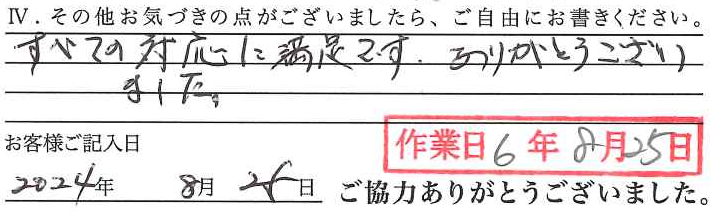 Ⅳ．その他お気づきの点がございましたら、ご自由にお書きください。
すべての対応に満足です．ありがとうござい
ました。
お客様ご記入日
作業日6年8月25日
2024年 8月 25日
ご協力ありがとうございました。